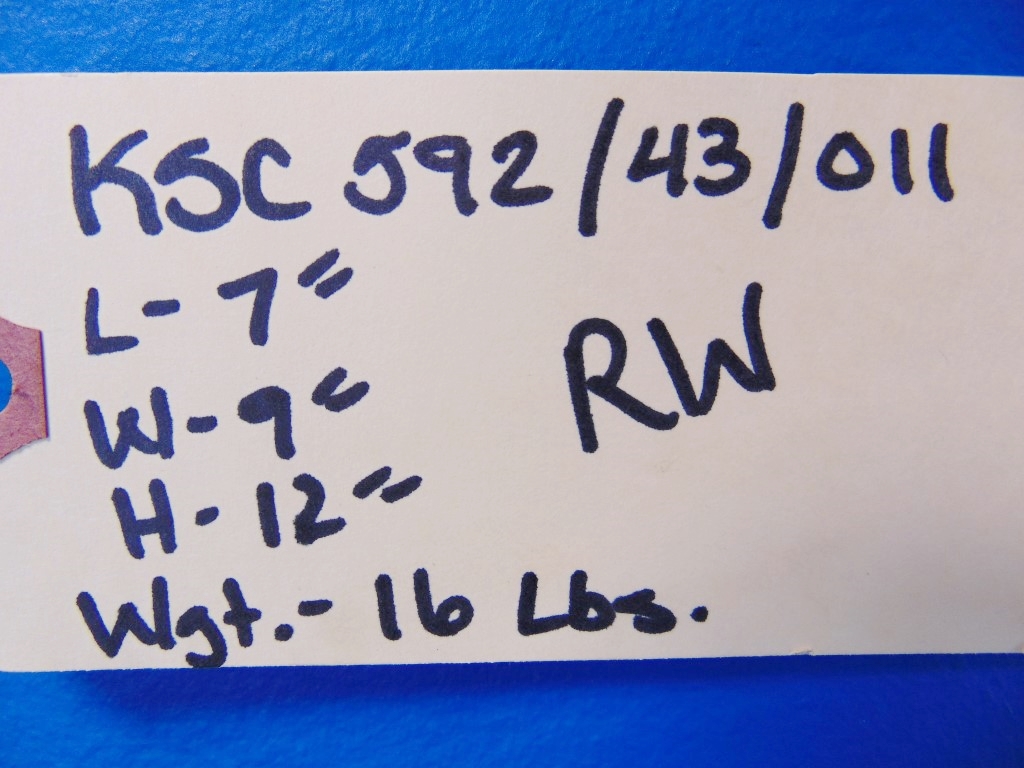 KSC 592/43/011
L- 7"
RW
W- 9"
H- 12"
Wgt.- 16 Lbs.